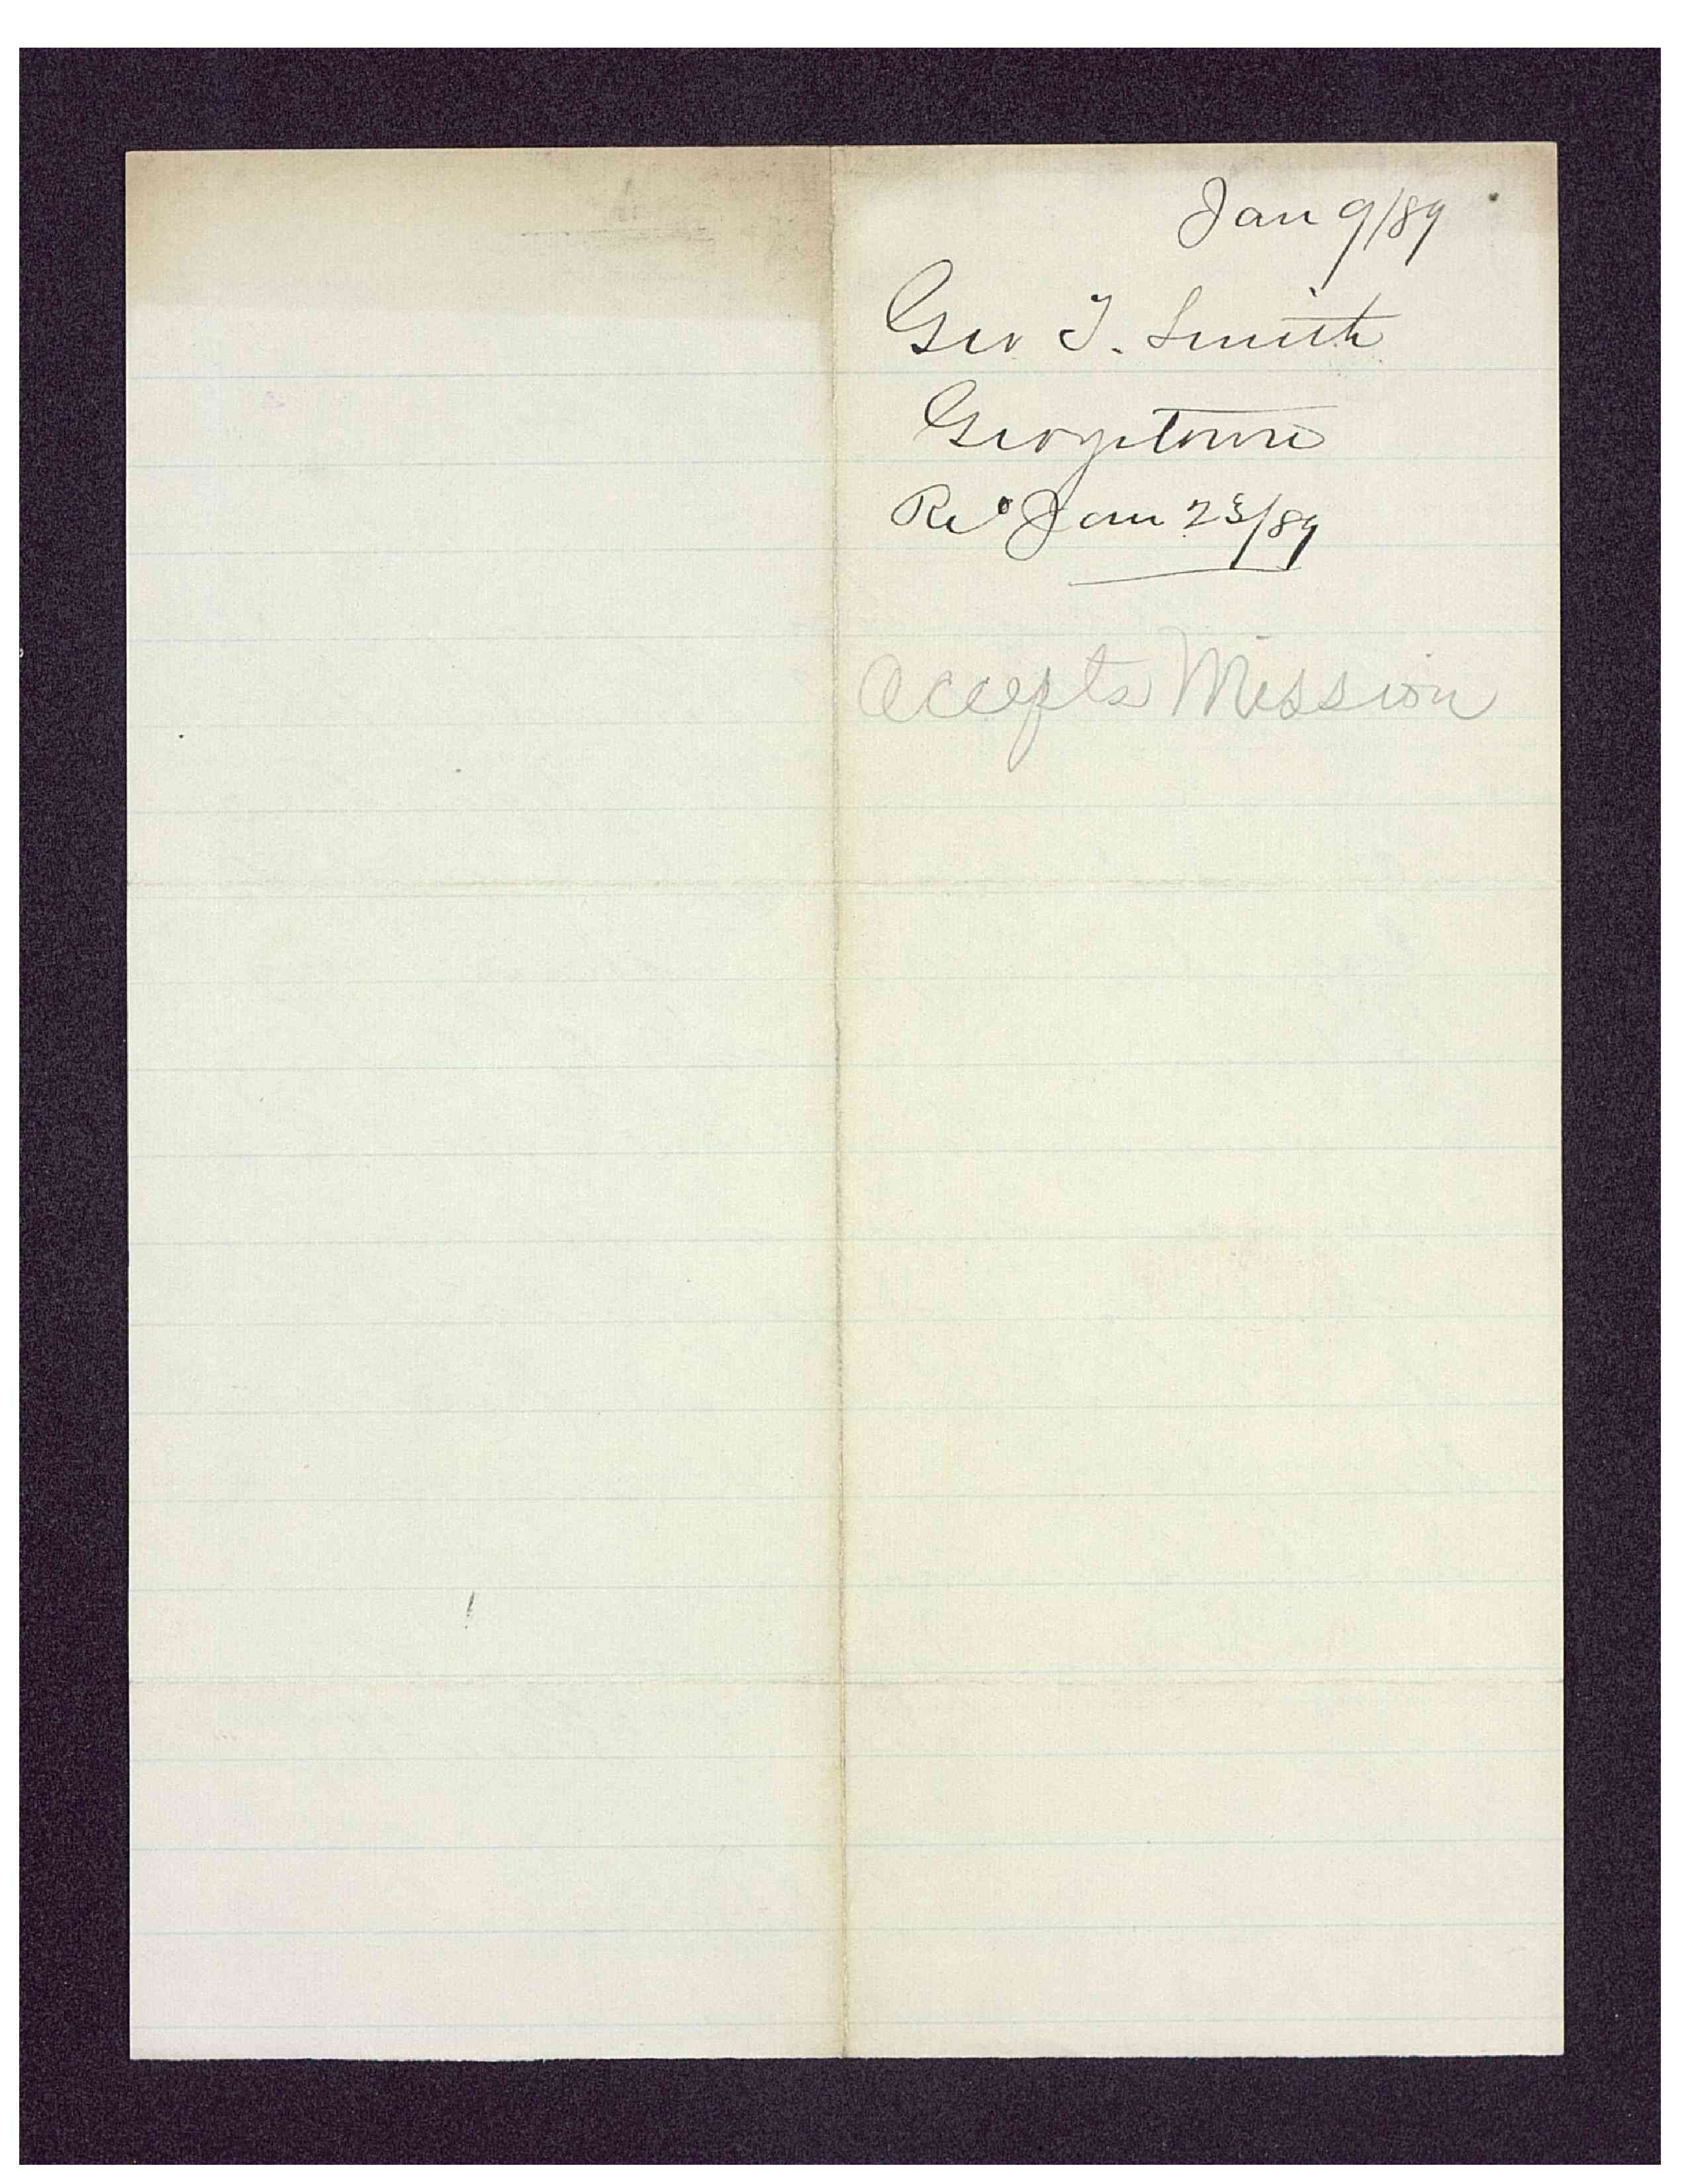 Jan 9/89
Geo T. Smith
Georgetown
Recd Jan 23/89
Accepts Mission